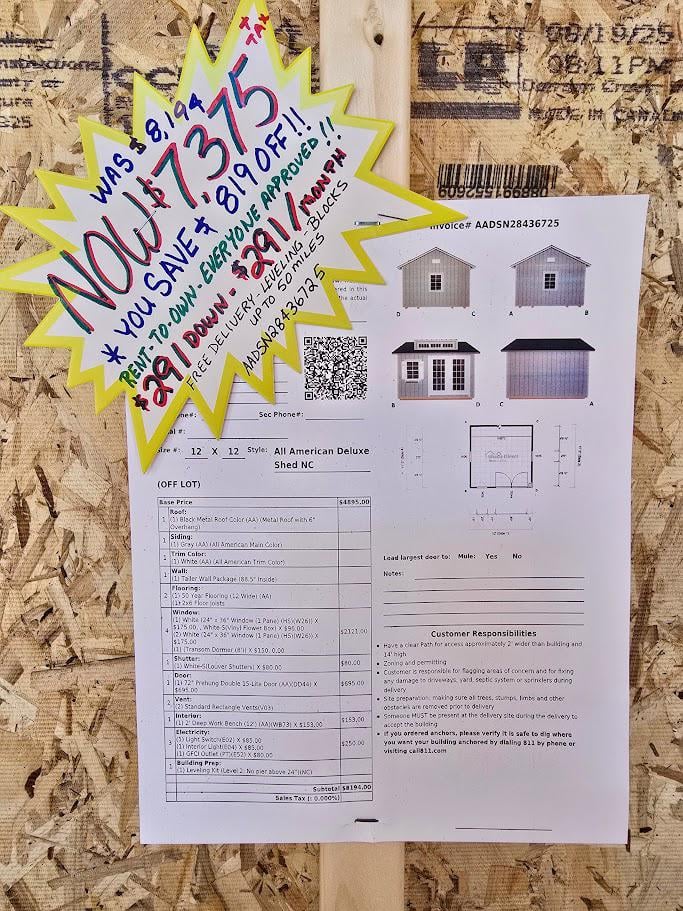 08/19/25
08:11PM
MADE IN CANADA
WAS $8,194
NOW $7,375
+ TAX
* YOU SAVE $819 OFF!!
RENT-TO-OWN-EVERYONE APPROVED!!
$291 DOWN - $291/MONTH
FREE DELIVERY-LEVELING-BLOCKS
UP TO 50 MILES
AADSN28436725
Invoice# AADSN28436725
D C A B
B D C A
Sec Phone#:
Size #: 12 X 12 Style: All American Deluxe
Shed NC
(OFF LOT)
Base Price $4895.00
Roof:
1 (1) Black Metal Roof Color (AA) (Metal Roof with 6"
Overhang)
Siding:
1 (1) Gray (AA) (All American Main Color)
Trim Color:
1 (1) White (AA) (All American Trim Color)
Wall:
1 (1) Taller Wall Package (88.5" Inside)
Flooring:
2 (1) 50 Year Flooring (12 Wide) (AA)
(1) 2x6 Floor Joists
Window:
(1) White (24" x 36" Window (1 Pane) (HS)(W26)) X
$175.00, , White-S(Vinyl Flower Box) X $96.00
4 (2) White (24" x 36" Window (1 Pane) (HS)(W26)) X $2121.00
$175.00
(1) (Transom Dormer (8'))
Shutter:
1 (1) White-S(Louver Shutters) X $80.00 $80.00
Door:
1 (1) 72" Prehung Double 15-Lite Door (AA)(DD44) X $695.00
$695.00
Vent:
2 (2) Standard Rectangle Vents(V03)
Interior:
1 (1) 2' Deep Work Bench (12') (AA)(WB73) X $153.00 $153.00
Electricity:
3 (1) Light Switch(E02) X $85.00
(1) Interior Light(E04) X $85.00 $250.00
(1) GFCI Outlet (PT)(E52) X $80.00
Building Prep:
1 (1) Leveling Kit (Level 2: No pier above 24")(NC)
Subtotal $8194.00
Sales Tax (: 0.000%)
Load largest door to: Mule: Yes No
Notes:
Customer Responsibilities
• Have a clear Path for access approximately 2' wider than building and
14' high
• Zoning and permitting
• Customer is responsible for flagging areas of concern and for fixing
any damage to driveways, yard, septic system or sprinklers during
delivery
• Site preparation, making sure all trees, stumps, limbs and other
obstacles are removed prior to delivery
• Someone MUST be present at the delivery site during the delivery to
accept the building
• If you ordered anchors, please verify it is safe to dig where
you want your building anchored by dialing 811 by phone or
visiting call811.com